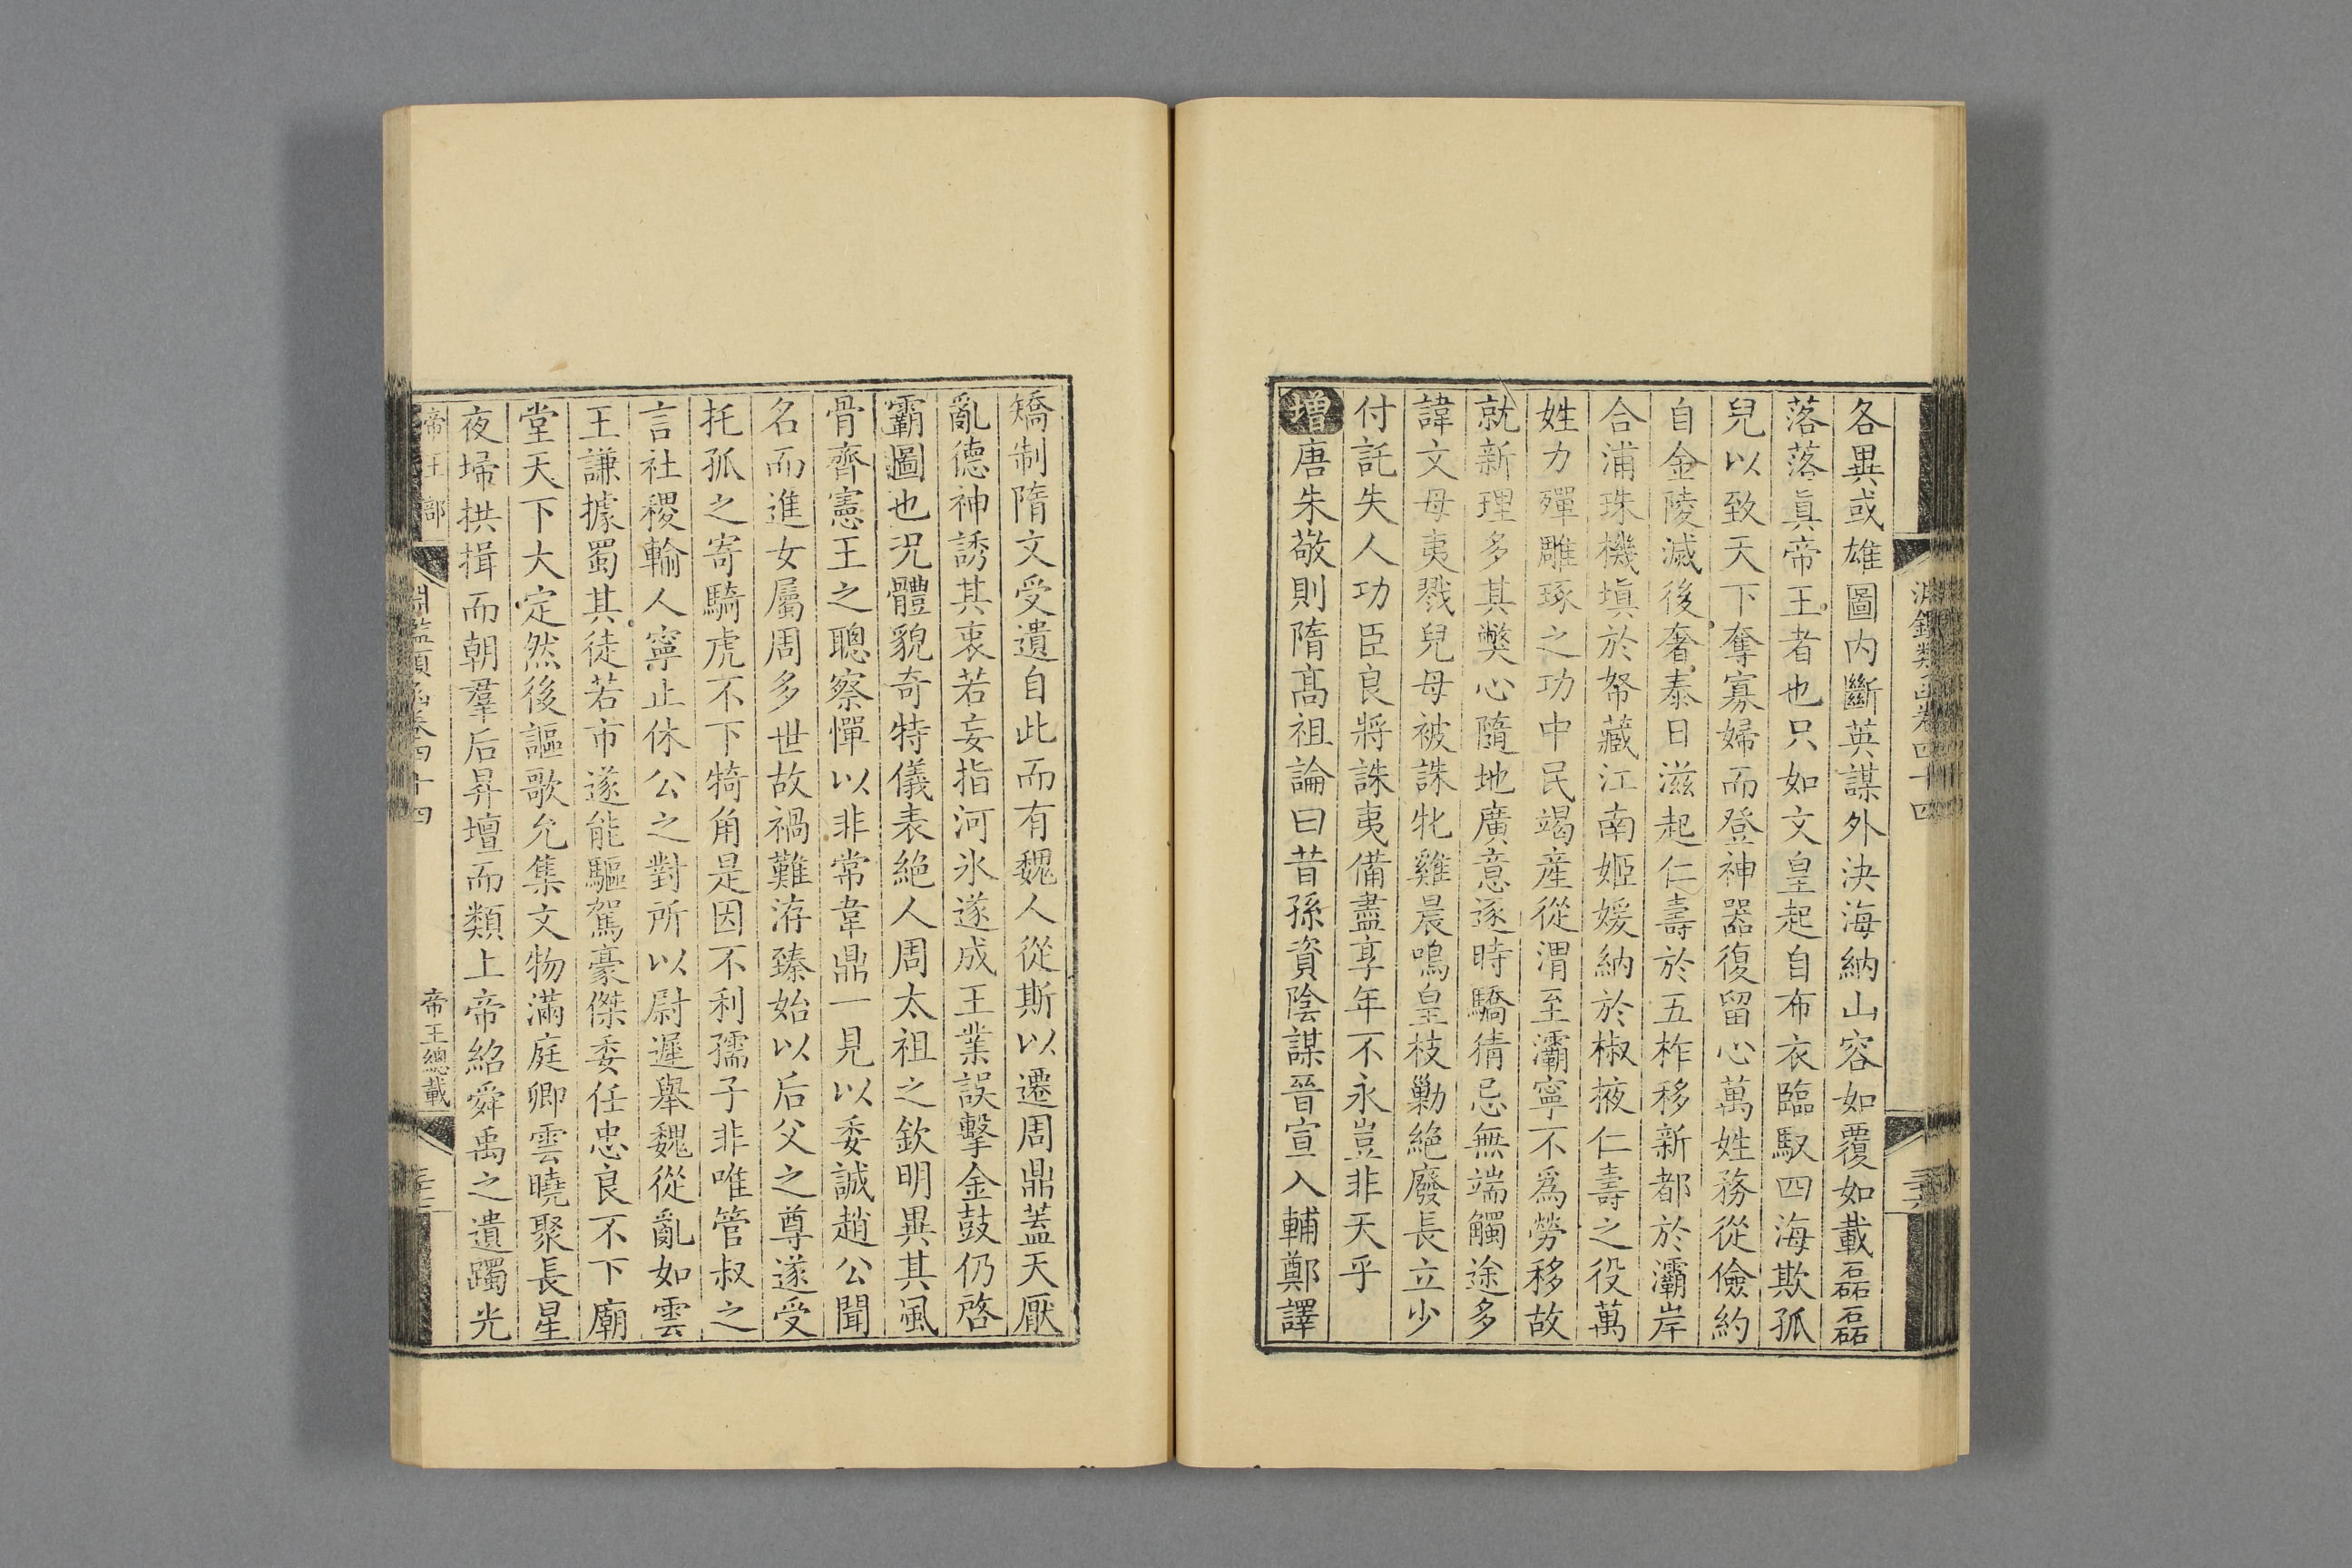 各異或雄圖內斷英謀外決海納山容如覆如載磊磊
落落眞帝王者也只如文皇起自布衣臨馭四海欺孤
兒以致天下奪寡婦而登神器復留心萬姓務從儉約
自金陵滅後奢泰日滋起仁壽於五柞移新都於灞岸
合浦珠機塡於帑藏江南姬媛納於椒掖仁壽之役萬
姓力殫雕琢之功中民竭產從渭至灞寧不爲勞移故
就新理多其獘心隨地廣意逐時驕猜忌無端觸途多
諱文母夷戮兒母被誅牝雞晨鳴皇枝勦絕廢長立少
付託失人功臣良將誅夷備盡享年不永豈非天乎
增唐朱敬則隋高祖論曰昔孫資陰謀晉宣入輔鄭譯
矯制隋文受遺自此而有魏人從斯以遷周鼎蓋天厭
亂德神誘其衷若妄指河氷遂成王業誤擊金鼓仍啓
霸圖也況體貌奇特儀表絕人周太祖之欽明異其風
骨齊憲王之聰察憚以非常韋鼎一見以委誠趙公聞
名而進女屬周多世故禍難洊臻始以后父之尊遂受
托孤之寄騎虎不下犄角是因不利孺子非唯管叔之
言社稷輸人寧止休公之對所以尉遲舉魏從亂如雲
王謙據蜀其徒若市遂能驅駕豪傑委任忠良不下廟
堂天下大定然後謳歌允集文物滿庭卿雲曉聚長星
夜埽拱揖而朝羣后昇壇而類上帝紹舜禹之遺躅光
帝王部
淵鑑類函卷四十四
帝王總載